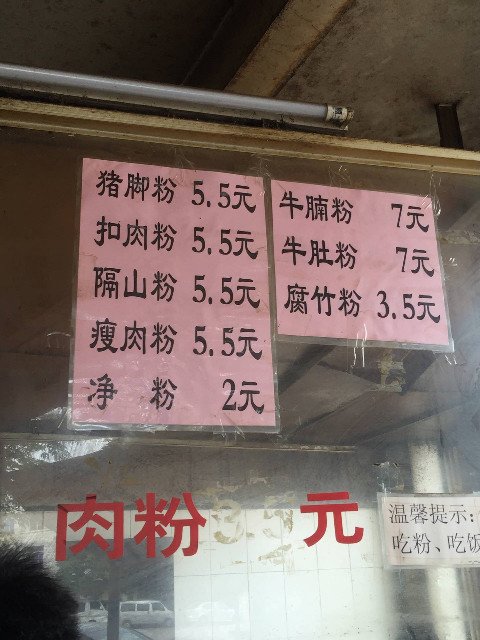 猪脚粉 5.5元
扣肉粉 5.5元
隔山粉 5.5元
瘦肉粉 5.5元
净 粉 2元
牛腩粉 7元
牛肚粉 7元
腐竹粉 3.5元
肉粉 3.5元
温馨提示:
吃粉、吃饭